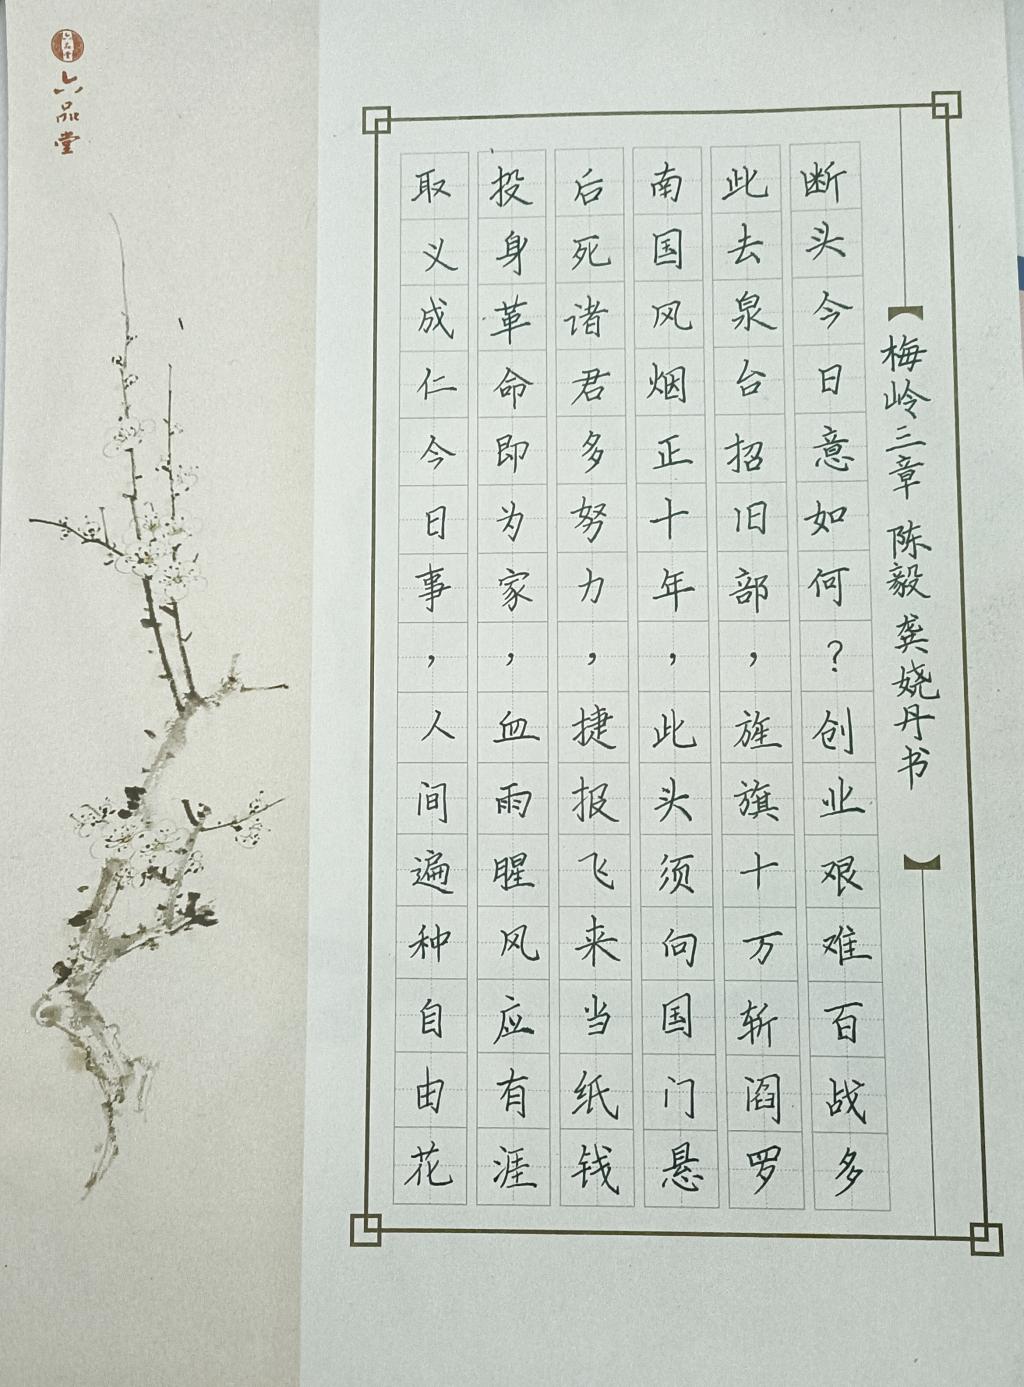 梅岭三章 陈毅 龚娆丹书
断头今日意如何？创业艰难百战多
此去泉台招旧部，旌旗十万斩阎罗
南国风烟正十年，此头须向国门悬
后死诸君多努力，捷报飞来当纸钱
投身革命即为家，血雨腥风应有涯
取义成仁今日事，人间遍种自由花
六品堂
六品堂